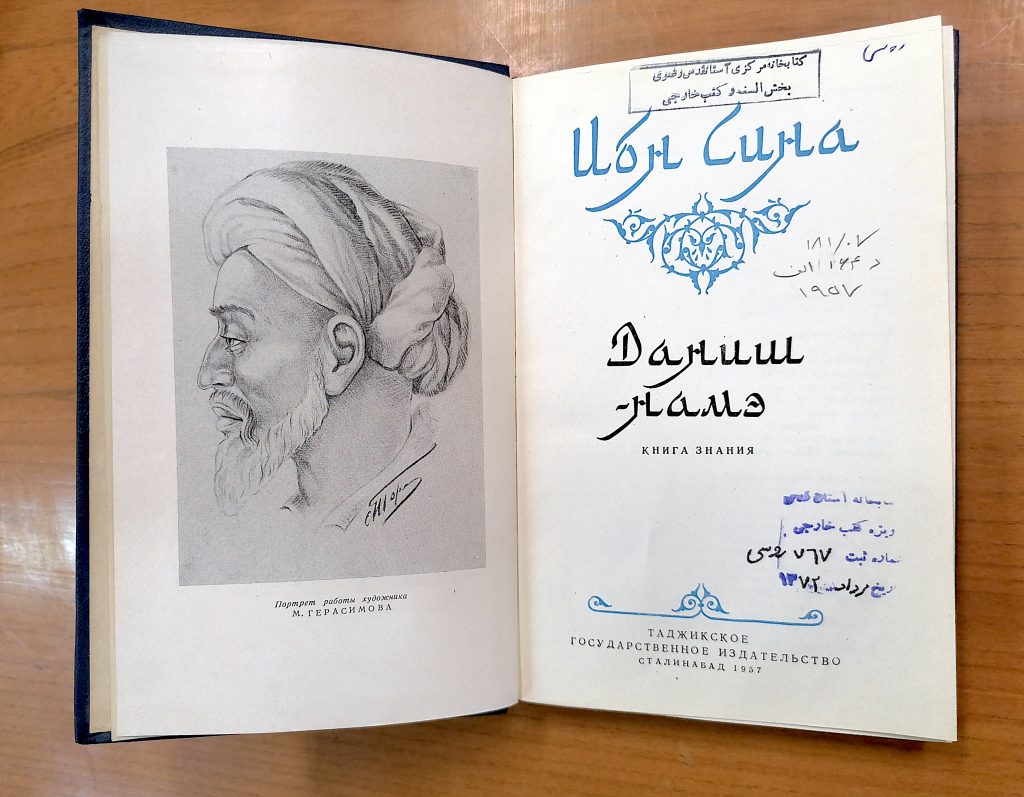 Портрет работы художника
М. ГЕРАСИМОВА
روسی
کتابخانه مرکزی آستانقدس رضوی
بخش السنه و کتب خارجی
Ибн Сина
۱۸۱/۰۷
۱۹۵۷
Даниш
-намэ
КНИГА ЗНАНИЯ
آستان قدس
ویژه کتب خارجی
شماره ثبت ۷۶۷ روسی
مرداد ۱۳۷۲
ТАДЖИКСКОЕ
ГОСУДАРСТВЕННОЕ ИЗДАТЕЛЬСТВО
СТАЛИНАБАД 1957